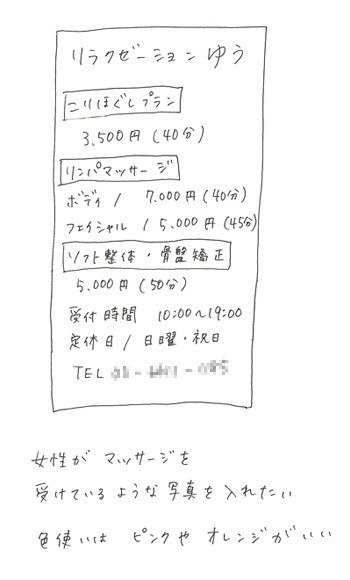 リラクゼーションゆう
こりほぐしプラン
3,500円(40分)
リンパマッサージ
ボディ / 7,000円(40分)
フェイシャル / 5,000円(45分)
ソフト整体・骨盤矯正
5,000円(50分)
受付時間 10:00~19:00
定休日 / 日曜・祝日
TEL
女性がマッサージを
受けているような写真を入れたい
色使いは ピンクや オレンジがいい